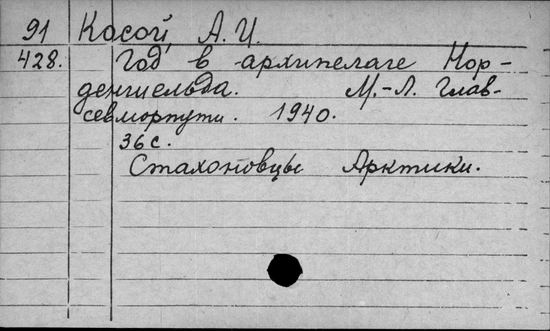 91 Косой, А. И.
428. Год в архипелаге Нор-
денгиельда. М.-Л. Глав-
севморпути. 1940.
36 с.
Стахоновцы Арктики.